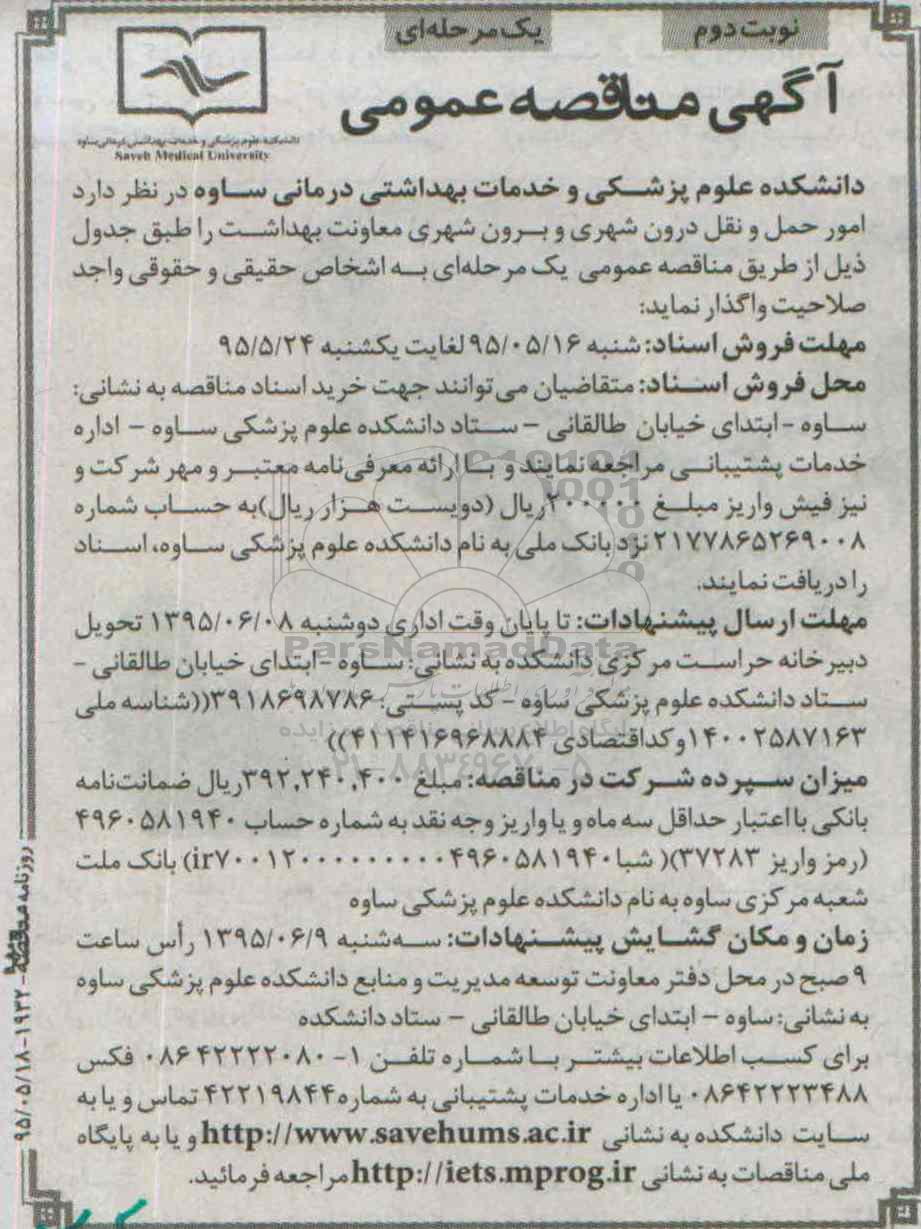 نوبت دوم
یک مرحله‌ای
آگهی مناقصه عمومی
دانشکده علوم پزشکی و خدمات بهداشتی درمانی ساوه
Saveh Medical University
دانشکده علوم پزشکی و خدمات بهداشتی درمانی ساوه در نظر دارد
امور حمل و نقل درون شهری و برون شهری معاونت بهداشت را طبق جدول
ذیل از طریق مناقصه عمومی یک مرحله‌ای به اشخاص حقیقی و حقوقی واجد
صلاحیت واگذار نماید:
مهلت فروش اسناد: شنبه ۹۵/۰۵/۱۶ لغایت یکشنبه ۹۵/۵/۲۴
محل فروش اسناد: متقاضیان می‌توانند جهت خرید اسناد مناقصه به نشانی:
ساوه - ابتدای خیابان طالقانی – ستاد دانشکده علوم پزشکی ساوه – اداره
خدمات پشتیبانی مراجعه نمایند و با ارائه معرفی‌نامه معتبر و مهر شرکت و
نیز فیش واریز مبلغ ۲۰۰۰۰۰ ریال (دویست هزار ریال) به حساب شماره
۲۱۷۷۸۶۵۲۶۹۰۰۸ نزد بانک ملی به نام دانشکده علوم پزشکی ساوه، اسناد
را دریافت نمایند.
مهلت ارسال پیشنهادات: تا پایان وقت اداری دوشنبه ۱۳۹۵/۰۶/۰۸ تحویل
دبیرخانه حراست مرکزی دانشکده به نشانی: ساوه - ابتدای خیابان طالقانی -
ستاد دانشکده علوم پزشکی ساوه - کد پستی: ۳۹۱۸۶۹۸۷۸۶ ((شناسه ملی
۱۴۰۰۲۵۸۷۱۶۳ و کد اقتصادی ۴۱۱۴۱۶۹۶۸۸۸۴))
میزان سپرده شرکت در مناقصه: مبلغ ۳۹۲,۲۴۰,۴۰۰ ریال ضمانت‌نامه
بانکی با اعتبار حداقل سه ماه و یا واریز وجه نقد به شماره حساب ۴۹۶۰۵۸۱۹۴۰
(رمز واریز ۳۷۲۸۳)( شبا ir۷۰۰۱۲۰۰۰۰۰۰۰۰۰۰۴۹۶۰۵۸۱۹۴۰) بانک ملت
شعبه مرکزی ساوه به نام دانشکده علوم پزشکی ساوه
زمان و مکان گشایش پیشنهادات: سه‌شنبه ۱۳۹۵/۰۶/۹ رأس ساعت
۹ صبح در محل دفتر معاونت توسعه مدیریت و منابع دانشکده علوم پزشکی ساوه
به نشانی: ساوه – ابتدای خیابان طالقانی – ستاد دانشکده
برای کسب اطلاعات بیشتر با شماره تلفن ۱- ۰۸۶۴۲۲۲۲۰۸۰ فکس
۰۸۶۴۲۲۲۳۴۸۸ یا اداره خدمات پشتیبانی به شماره ۴۲۲۱۹۸۴۴ تماس و یا به
سایت دانشکده به نشانی http://www.savehums.ac.ir و یا به پایگاه
ملی مناقصات به نشانی http://iets.mprog.ir مراجعه فرمائید.
روزنامه مناقصه - ۱۹۳۲ - ۹۵/۰۵/۱۸
ParsNamadData
۰۲۱-۸۸۳۴۹۶۷۰-۵